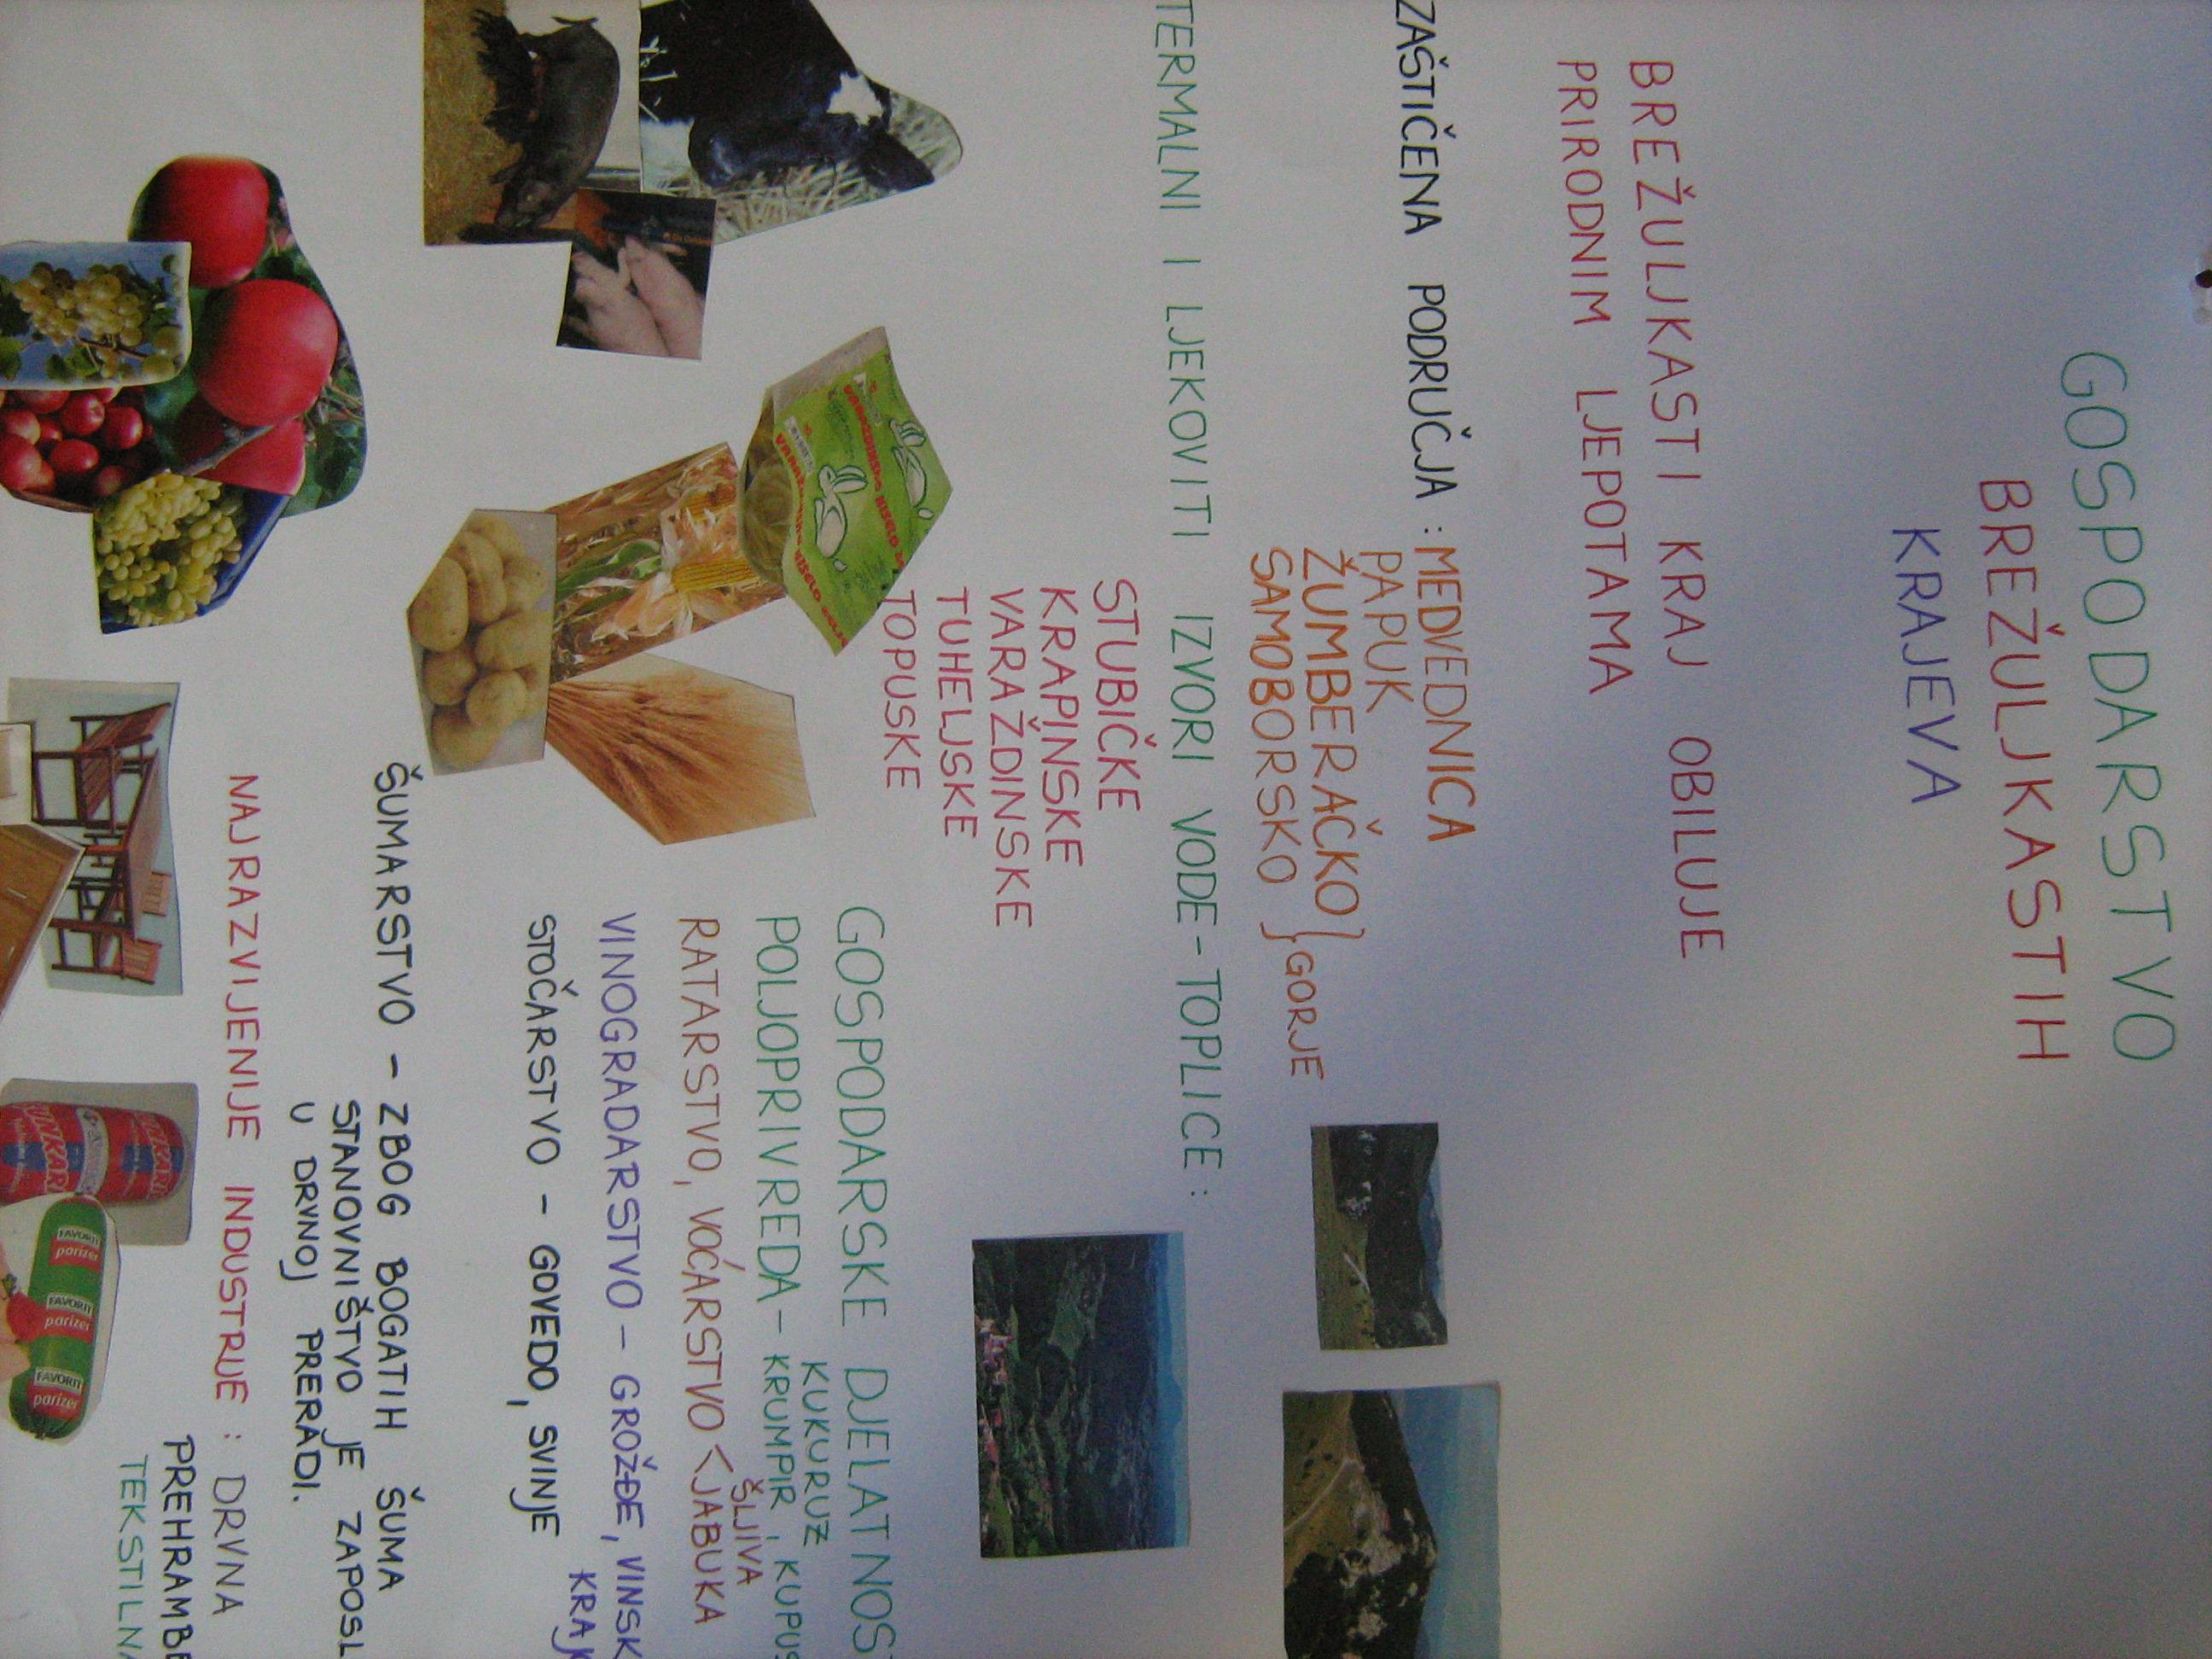 GOSPODARSTVO
BREŽULJKASTIH
KRAJEVA
BREŽULJKASTI KRAJ OBILUJE
PRIRODNIM LJEPOTAMA
ZAŠTIČENA PODRUČJA : MEDVEDNICA
PAPUK
ŽUMBERAČKO } GORJE
SAMOBORSKO
TERMALNI I LJEKOVITI IZVORI VODE - TOPLICE :
STUBIČKE
KRAPINSKE
VARAŽDINSKE
TUHELJSKE
TOPUSKE
GOSPODARSKE DJELATNOST
KUKURUZ
POLJOPRIVREDA - KRUMPIR, KUPUS
ŠLJIVA
RATARSTVO, VOĆARSTVO < JABUKA
VINOGRADARSTVO - GROŽĐE, VINSK
KRAJ
STOČARSTVO - GOVEDO, SVINJE
ŠUMARSTVO - ZBOG BOGATIH ŠUMA
STANOVNIŠTVO JE ZAPOSL
U DRVNOJ PRERADI.
NAJRAZVIJENIJE INDUSTRIJE : DRVNA
PREHRAMBE
TEKSTILNA
FAVORIT
parizer
FAVORIT
parizer
FAVORIT
parizer